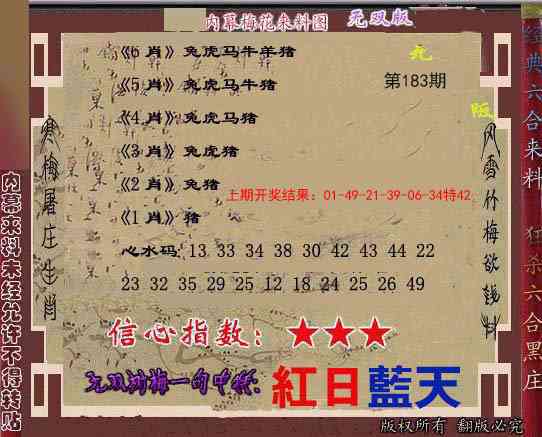 内幕梅花来料图 无双版
《6 肖》兔虎马牛羊猪
《5 肖》兔虎马牛猪
第183期
《4 肖》兔虎马猪
《3 肖》兔虎猪
《2 肖》兔猪
上期开奖结果：01-49-21-39-06-34特42
《1 肖》猪
心水码: 13 33 34 38 30 42 43 44 22
23 32 35 29 25 12 18 24 25 26 49
信心指数：★★★
无双鸿梅一句中特: 紅日藍天
版权所有 翻版必究
寒梅屠庄生肖
风雪竹梅欲钱料
内幕来料未经允许不得转贴
经典六合来料 狂杀六合黑庄